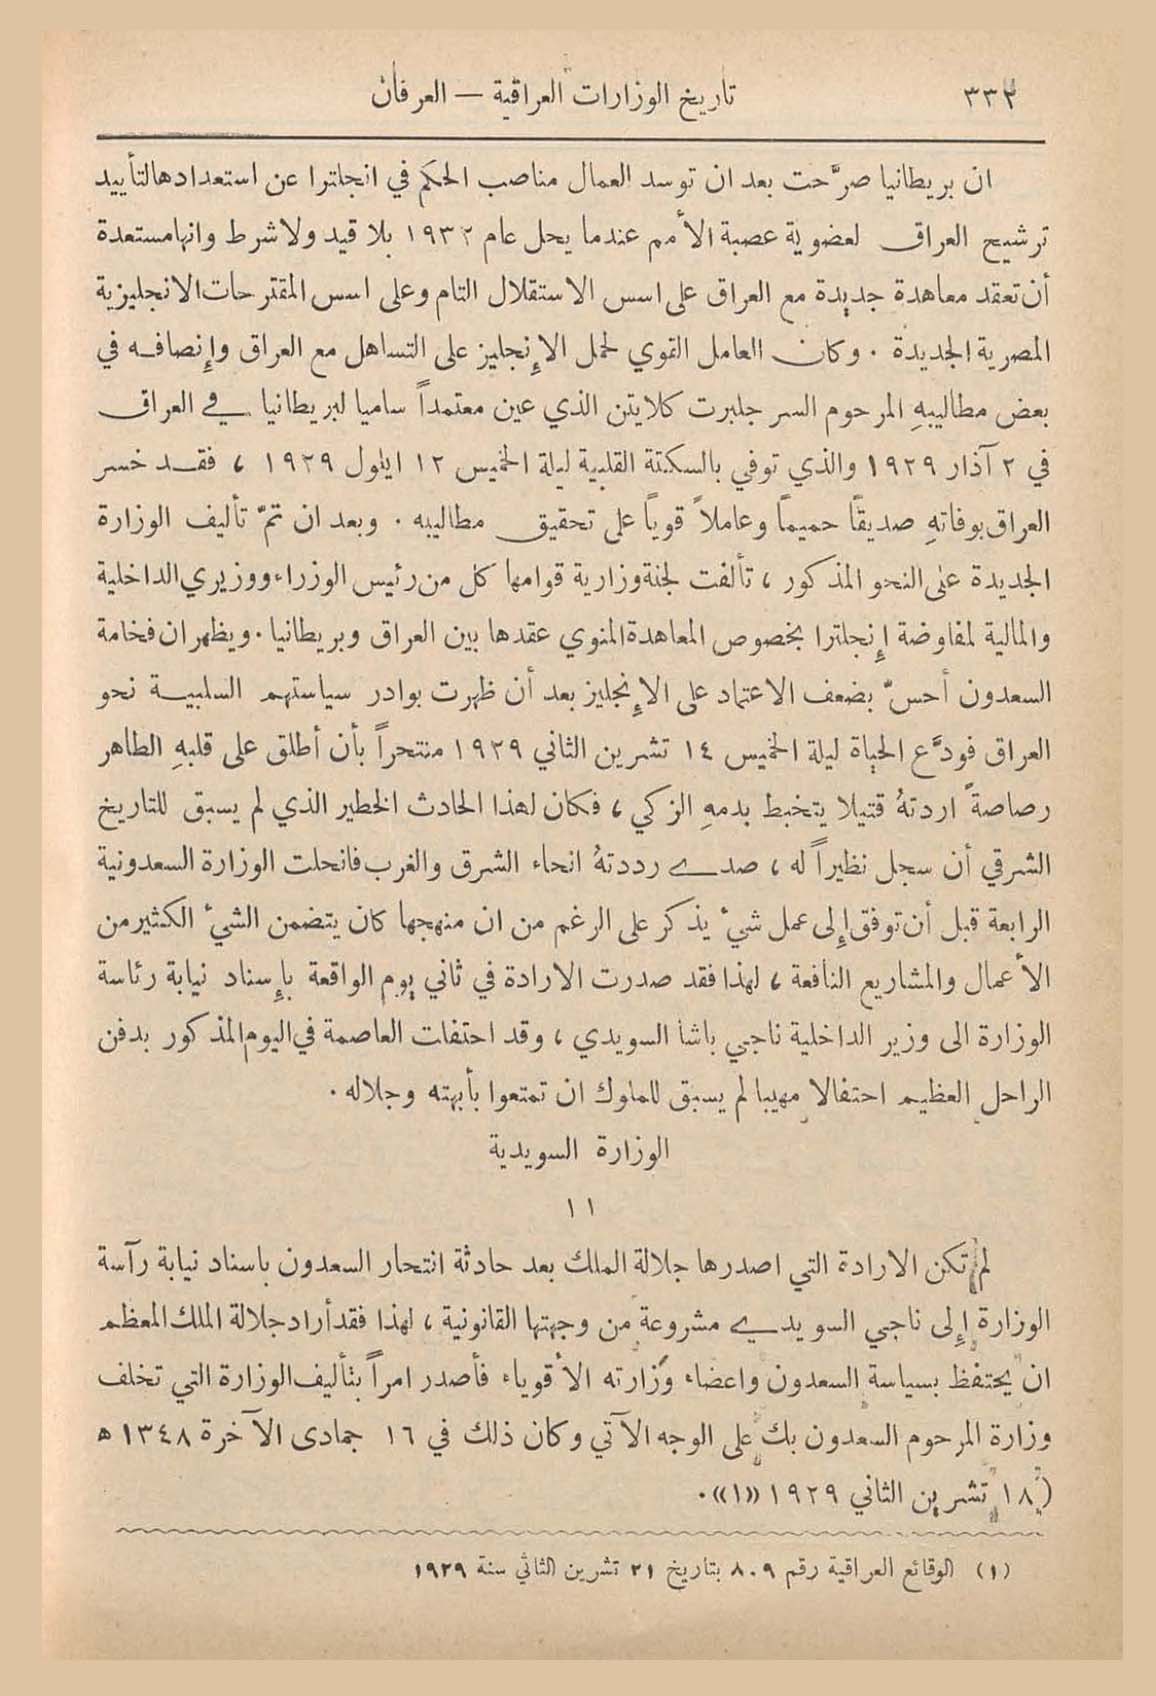 ٣٣٢ تاريخ الوزارات العراقية — العرفان
ان بريطانيا صرَّحت بعد ان توسد العمال مناصب الحكم في انجلترا عن استعدادها لتأييد
ترشيح العراق لعضوية عصبة الأمم عندما يحل عام ١٩٣٢ بلا قيد ولا شرط وانها مستعدة
أن تعقد معاهدة جديدة مع العراق على اسس الاستقلال التام وعلى اسس المقترحات الانجليزية
المصرية الجديدة . وكان العامل القوي لحمل الإنجليز على التساهل مع العراق وإنصافه في
بعض مطاليبهِ المرحوم السر جلبرت كلايتن الذي عين معتمداً ساميا لبريطانيا في العراق
في ٢ آذار ١٩٢٩ والذي توفي بالسكتة القلبية ليلة الخميس ١٢ ايلول ١٩٢٩ ، فقد خسر
العراق بوفاتهِ صديقاً حميماً وعاملاً قوياً على تحقيق مطاليبه . وبعد ان تمّ تأليف الوزارة
الجديدة على النحو المذكور ، تألفت لجنة وزارية قوامها كل من رئيس الوزراء ووزيري الداخلية
والمالية لمفاوضة إنجلترا بخصوص المعاهدة المنوي عقدها بين العراق وبريطانيا . ويظهر ان فخامة
السعدون أحسّ بضعف الاعتماد على الإنجليز بعد أن ظهرت بوادر سياستهم السلبية نحو
العراق فودَّع الحياة ليلة الخميس ١٤ تشرين الثاني ١٩٢٩ منتحراً بأن أطلق على قلبهِ الطاهر
رصاصةً اردتهُ قتيلا يتخبط بدمهِ الزكي ، فكان لهذا الحادث الخطير الذي لم يسبق للتاريخ
الشرقي أن سجل نظيراً له ، صدى رددتهُ انحاء الشرق والغرب فانحلت الوزارة السعدونية
الرابعة قبل أن توفق إلى عمل شيء يذكر على الرغم من ان منهجها كان يتضمن الشيء الكثير من
الأعمال والمشاريع النافعة ، لهذا فقد صدرت الارادة في ثاني يوم الواقعة بإسناد نيابة رئاسة
الوزارة الى وزير الداخلية ناجي باشا السويدي ، وقد احتفلت العاصمة في اليوم المذكور بدفن
الراحل العظيم احتفالا مهيبا لم يسبق للملوك ان تمتعوا بأبهته وجلاله .
الوزارة السويدية
١١
لم تكن الارادة التي اصدرها جلالة الملك بعد حادثة انتحار السعدون باسناد نيابة رآسة
الوزارة إلى ناجي السويدي مشروعة من وجهتها القانونية ، لهذا فقد أراد جلالة الملك المعظم
ان يحتفظ بسياسة السعدون واعضاء وزارته الأقوياء فأصدر امراً بتأليف الوزارة التي تخلف
وزارة المرحوم السعدون بك على الوجه الآتي وكان ذلك في ١٦ جمادى الآخرة ١٣٤٨ ه
( ١٨ تشرين الثاني ١٩٢٩ «(١)» .
(١) الوقائع العراقية رقم ٨٠٩ بتاريخ ٢١ تشرين الثاني سنة ١٩٢٩